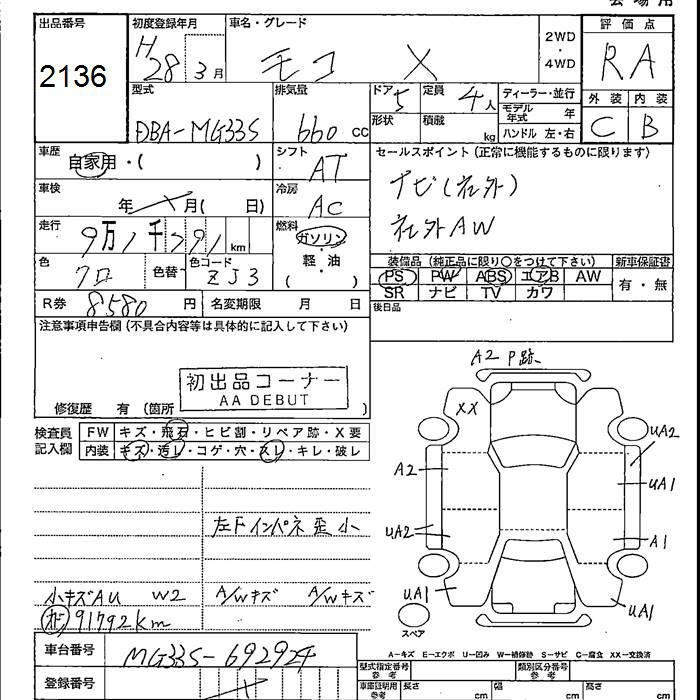 出品番号 初度登録年月 車名・グレード 2WD・4WD 評価点
2136 H28 3月 モコ X RA
型式 排気量 ドア 5 定員 4人 ディーラー・並行 外装 内装
形状 積載 kg モデル年式 年
DBA-MG33S 660 cc ハンドル 左・右 C B
車歴 自家用・( ) シフト AT セールスポイント(正常に機能するものに限ります)
車検 年 月( 日) 冷房 AC ナビ(社外)
走行 9万1千791km 燃料 ガソリン・軽・油 ( ) 社外AW
色 クロ 色替 色コード ZJ3
装備品(純正品に限り〇をつけて下さい) 新車保証書
PS PW ABS エアB AW 有・無
SR ナビ TV カワ
R券 8580円 名変期限 月 日 後日品
注意事項申告欄(不具合内容等は具体的に記入して下さい)
初出品コーナー
AA DEBUT
修復歴 有(箇所 )
検査員記入欄 FW キズ・飛石・ヒビ割・リペア跡・X要
内装 キズ・汚レ・コゲ・穴・スレ・キレ・破レ
左Fインパネ歪小
小キズAU W2 A/Wキズ A/Wキズ
91792km
A2 P跡
XX
UA2
A2
UA1
UA2
A1
UA1
UA1
スペア
A-キズ E-エクボ U-凹み W-補修跡 S-サビ C-腐食 XX-交換済
車台番号 MG33S-692924
型式指定番号 参考 類別区分番号 参考
登録番号
車庫証明用 参考 長さ cm 幅 cm 高さ cm